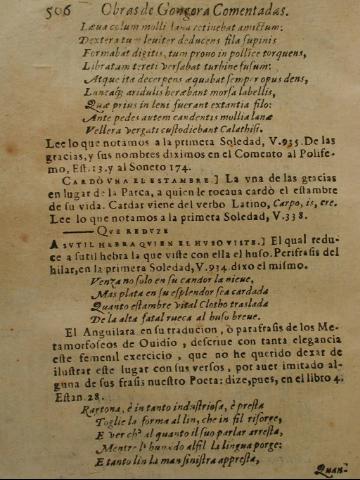 506 Obras de Gongora Comentadas.
Læua colum molli lana retinebat amictum:
Dextera tum leuiter deducens fila supinis
Formabat digitis, tum prono in pollice torquens,
Libratam tereti versabat turbine fusum:
Atque ita decerpens æquabat semper opus dens,
Lanæq; aridulis hærebant morsa labellis,
Quæ prius in leni fuerant extantia filo:
Ante pedes autem candentis mollia lanæ
Vellera vergati custodiebant Calathisi.
Lee lo que notamos a la primera Soledad, V.935. De las
gracias, y sus nombres diximos en el Comento al Polife-
mo, Est. 13. y al Soneto 174.
CARDÒ VNA EL ESTAMBRE.] La vna de las gracias
en lugar de la Parca, a quien le tocaua cardò el estambre
de su vida. Cardar viene del verbo Latino, Carpo, is, ere.
Lee lo que notamos a la primera Soledad, V.338.
QVE REDVZE
A SVTIL HEBRA QVIEN EL HVSO VISTE.] El qual redu-
ce a sutil hebra la que viste con ella el huso. Perifrasis del
hilar, en la primera Soledad, V.934. dixo el mismo.
Venza no solo en su candor la nieue,
Mas plata en su esplendor sea cardada
Quanto estambre vital Clotho traslada
De la alta fatal rueca al huso breue.
El Anguilara en su traducion, ò parafrasis de los Me-
tamorfoseos de Ouidio, descriue con tanta elegancia
este femenil exercicio, que no he querido dexar de
ilustrar este lugar con sus versos, por auer imitado al-
guna de sus frasis nuestro Poeta: dize, pues, en el libro 4.
Estan. 28.
è in tanto industriosa, è presta
Toglie la forma al lin, che in fil risorre,
E ver ch' al quanto il suo parlar arresta,
Mentre l' humido al fil la lingua porge:
E tanto lin la man sinistra appresta,
Quan-